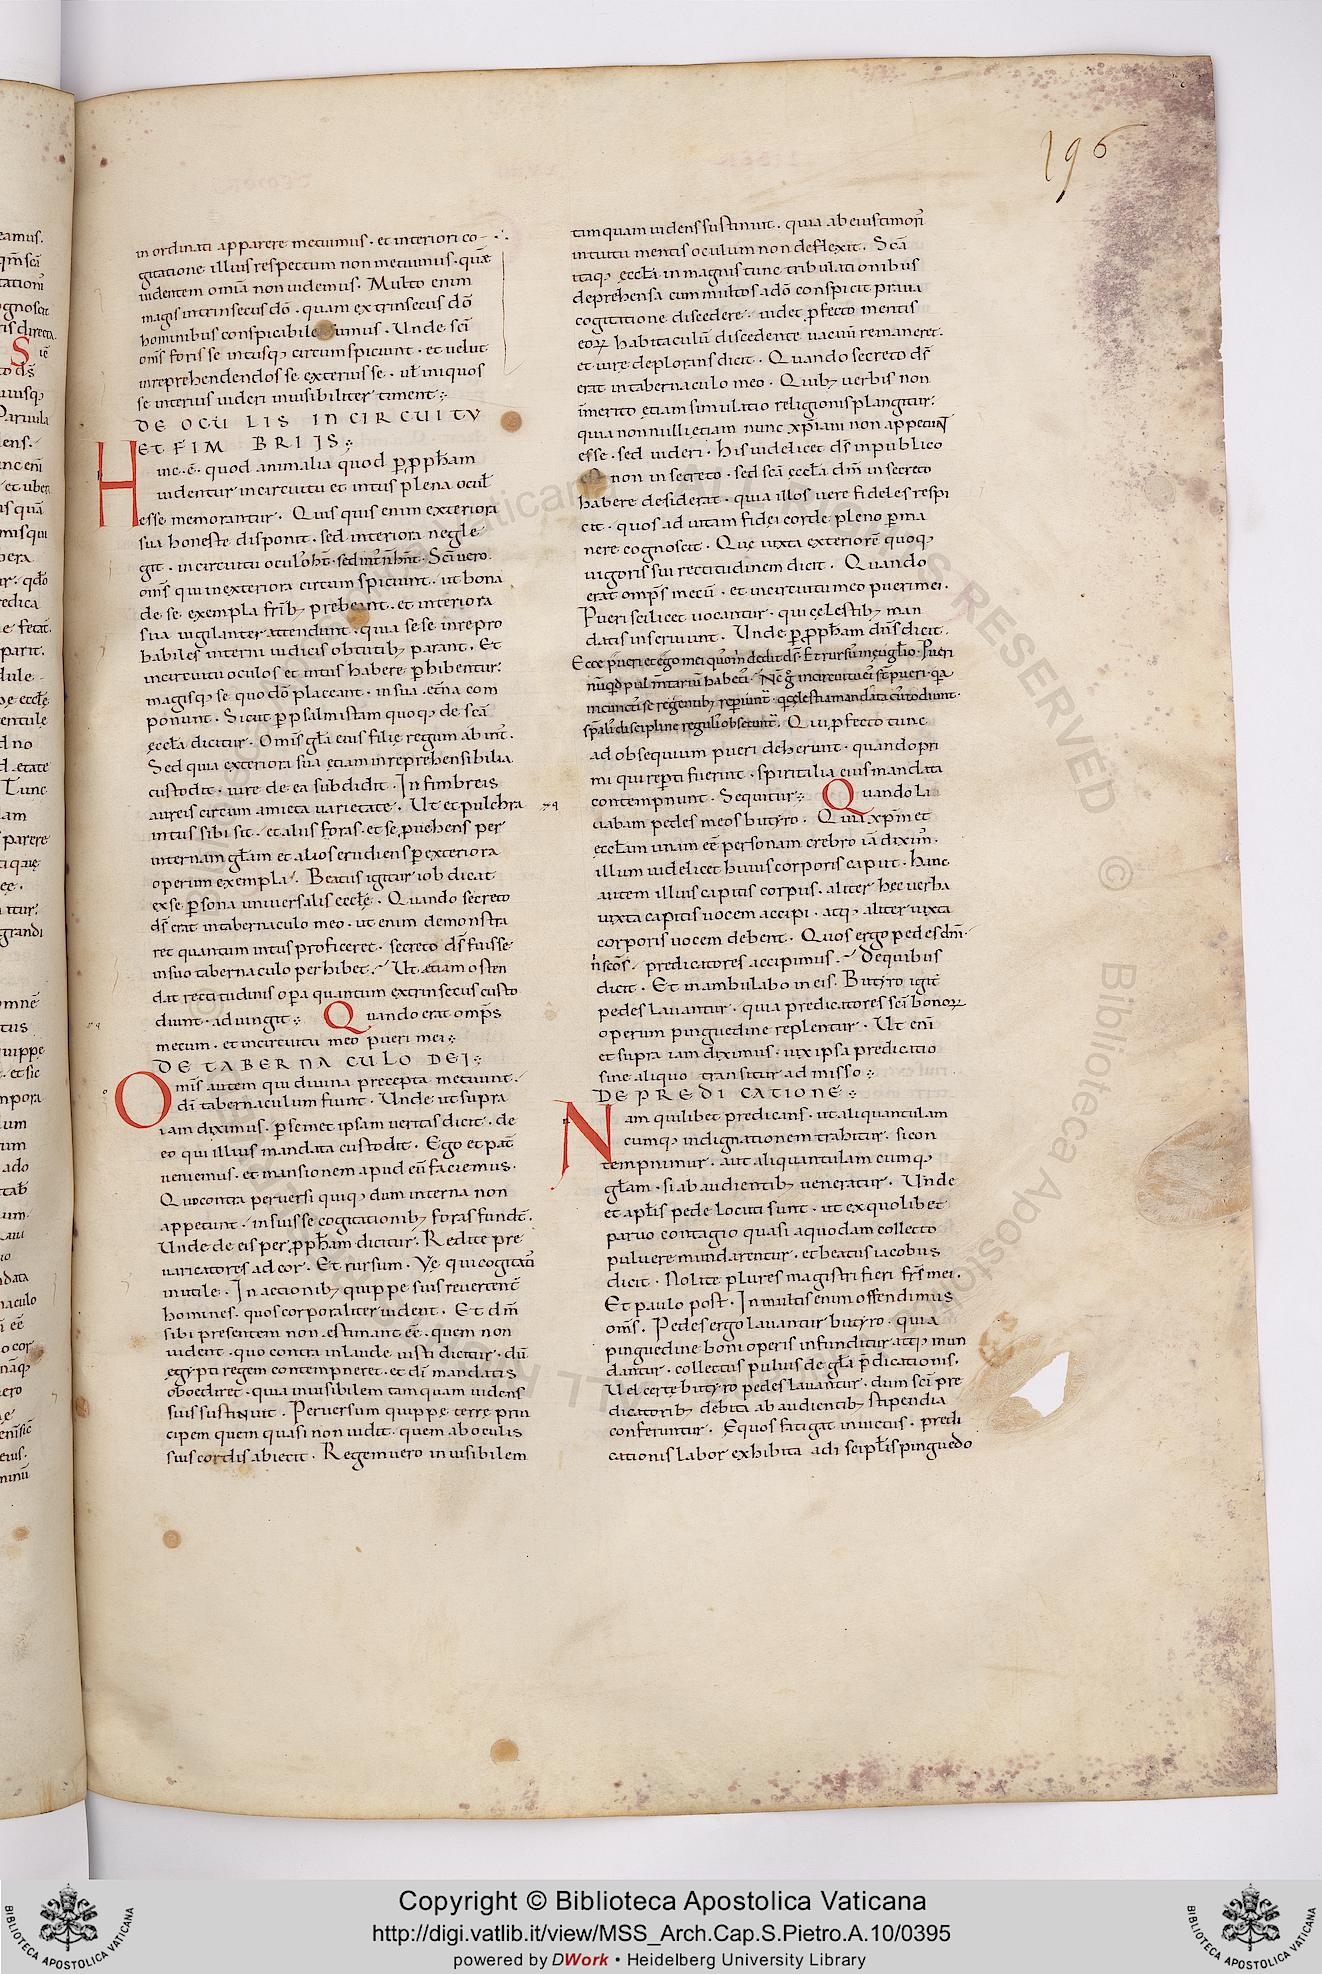 196
in ordinati apparere metuimus · et interiori co-
gitatione illius respectum non metuimus · quē
uidentem omĩa non uidemus. Multo enim
magis intrinsecus dō · quam extrinsecus dō
hominibus conspicibile sumus · Unde sc̄i
om̄s foris se intusq; circumspiciunt · et uelut
inreprehendendos se exterius se · ul̄ iniquos
se interius uideri inuisibiliter timent
DE OCULIS IN CIRCUITU
ET FIMBRIIS
Hinc · ē · quod animalia quod p̱ p̱ph̄am
uidentur in circuitu et intus plena ocul̄
esse memorantur. Quis quis enim exteriora
sua honeste disponit · sed interiora negle
git · in circuitu ocul̄ ht̄ · sed int̄ n̄ hnt̄ · Sc̄i uero
om̄s qui in exteriora circum spiciunt · ut bona
de se exempla fr̄ib; prebeant · et interiora
sua uigilanter attendunt · quia se se inrepro
habiles interni iudicis obtutib; parant · Et
incircuitu oculos et intus habere p̱hibentur
magisq; se quo dō placeant · in sua et̄na com
ponunt · Sicut p̱ psalmistam quoq; de sc̄a
ęccl̄a dicitur · Omĩs gl̄a eius filię regum ab int̄ ·
Sed quia exteriora sua etiam inreprehensibilia
custodit · iure de ea subdidit · In fimbreis
aureis circum amicta uarietate · Ut et pulchra
intus sibi sit · et aliis foras · et se p̱uehens per
internam gl̄am et alios erudiens p̱ exteriora
operum exempla · Beatus igitur iob dicat
ex se p̱sona uniuersalis eccl̄ę · Quando secreto
dš erat in tabernaculo meo · ut enim demonstra
ret quantum intus proficeret · secreto dš fuisse
in suo tabernaculo perhibet · Ut etiam osten
dat rectitudinis op̱a quantum extrinsecus custo
diunt · adiungit Quando erat omp̄s
mecum · et incircuitu meo pueri mei
DE TABERNACULO DEI
Omĩs autem qui diuina precepta metuunt ·
dī tabernaculum fiunt · Unde ut supra
iam diximus · p̱ semet ipsam ueritas dicit · de
eo qui illius mandata custodit · Ego et pat̄
ueniemus · et mansionem apud eū faciemus ·
Quo contra peruersi quiq; dum interna non
appetunt · in suis se cogitationib; foras fundt̄ ·
Unde de eis per p̱ph̄am dicitur · Redite pre
uaricatores ad cor · Et rursum · Vę qui cogitat̄
inutile · In actionib; quippe suis reuertent̄
homines · quos corporaliter uident · Et dm̄
sibi presentem non estimant eē · quem non
uident · quo contra in laude iusti dicitur · dū
egypti regem contempneret · et dī mandatis
oboediret · quia inuisibilem tamquam uidens
suis sustinuit · Peruersum quippe terre prin
cipem quem quasi non uidit · quem ab oculis
suis cordis abiecit · Regem uero inuisibilem
tamquam uidens sustinuit · quia ab eius timor̄
intuitu mentis oculum non deflexit · Sc̄a
itaq; ęccl̄a in magnis tunc tribulationibus
deprehensa cum multos a dō conspicit praua
cogitatione discedere · uidet p̱fecto mentis
eoꝝ habitaculū discedente uacuū remanere ·
et iure deplorans dicit · Quando secreto dš
erat in tabernaculo meo · Quib; uerbis non
īmerito etiam simulatio religionis plangitur
quia nonnulli etiam nunc xp̄iani non appetunt
esse · sed uideri · His uidelicet dš in publico
non in secreto · sed sc̄a eccl̄a dm̄ in secreto
habere desiderat · quia illos uere fideles respi
cit · quos ad uitam fidei corde pleno p̱ma
nere cognoscit · Que iuxta exteriorē quoq;
uigoris sui rectitudinem dicit · Quando
erat omp̄s mecū · et incircuitu meo pueri mei ·
Pueri scilicet uocantur · qui cęlestib; man
datis inseruiunt · Unde p̱ p̱ph̄am dn̄s dicit ·
Ecce pueri et ego mei quos m̄ dedit dš · Et rursū in eugl̄io · Pueri
nūqd̄ pulm̄tariū habetis · Nc̄ g̊ incircuitu ei st̄ pueri · qa
in cuncti se regentib; rep̱iunt̄ · q̄ cęlestia mandata custodiunt ·
sp̄ali disciplinę regulis obsecunt̄ · Qui p̱fecto tunc
ad obsequium pueri deherunt · quando pri
mi qui rep̱ti fuerint · spiritalia eius mandata
contempnunt · Sequitur Quando la
uabam pedes meos butyro · Quia xp̄m et
ęccl̄am unam eē personam crebro iā dixim̄ ·
illum uidelicet huius corporis caput · hanc
autem illius capitis corpus · aliter hec uerba
iuxta capitis uocem accipi · atq; aliter iuxta
corporis uocem debent · Quos ergo pedes dn̄i ·
n̄ sc̄os · predicatores accipimus · De quibus
dicit · Et inambulabo in eis · Butyro igit̄
pedes lauantur · quia predicatores sc̄i bonoꝝ
operum pinguedine replentur · Ut enī
et supra iam diximus · uix ipsa predicatio
sine aliquo transitur admisso
DE PREDICATIONE
Nam quilibet predicans · ut aliquantulam
cumq; indignationem trahitur · si con
tempnimur · aut aliquantulam cumq;
gl̄am · si ab audientib; ueneratur · Unde
et apl̄is pede locuti sunt · ut ex quolibet
paruo contagio quasi a quodam collecto
puluere mundarentur · et beatus iacobus
dicit · Nolite plures magistri fieri fr̄s mei ·
Et paulo post · In multis enim offendimus
om̄s · Pedes ergo lauantur butyro · quia
pinguedine boni operis infunditur atq; mun
dantur · collectus puluis de gl̄a p̄dicationis ·
Vel certe butyro pedes lauantur · dum sc̄i pre
dicatorib; debita ab audientib; stipendia
conferuntur · Equos fatigat iniectus · predi
cationis labor exhibita ad scipl̄is pinguedo
Copyright © Biblioteca Apostolica Vaticana
http://digi.vatlib.it/view/MSS_Arch.Cap.S.Pietro.A.10/0395
powered by DWork • Heidelberg University Library